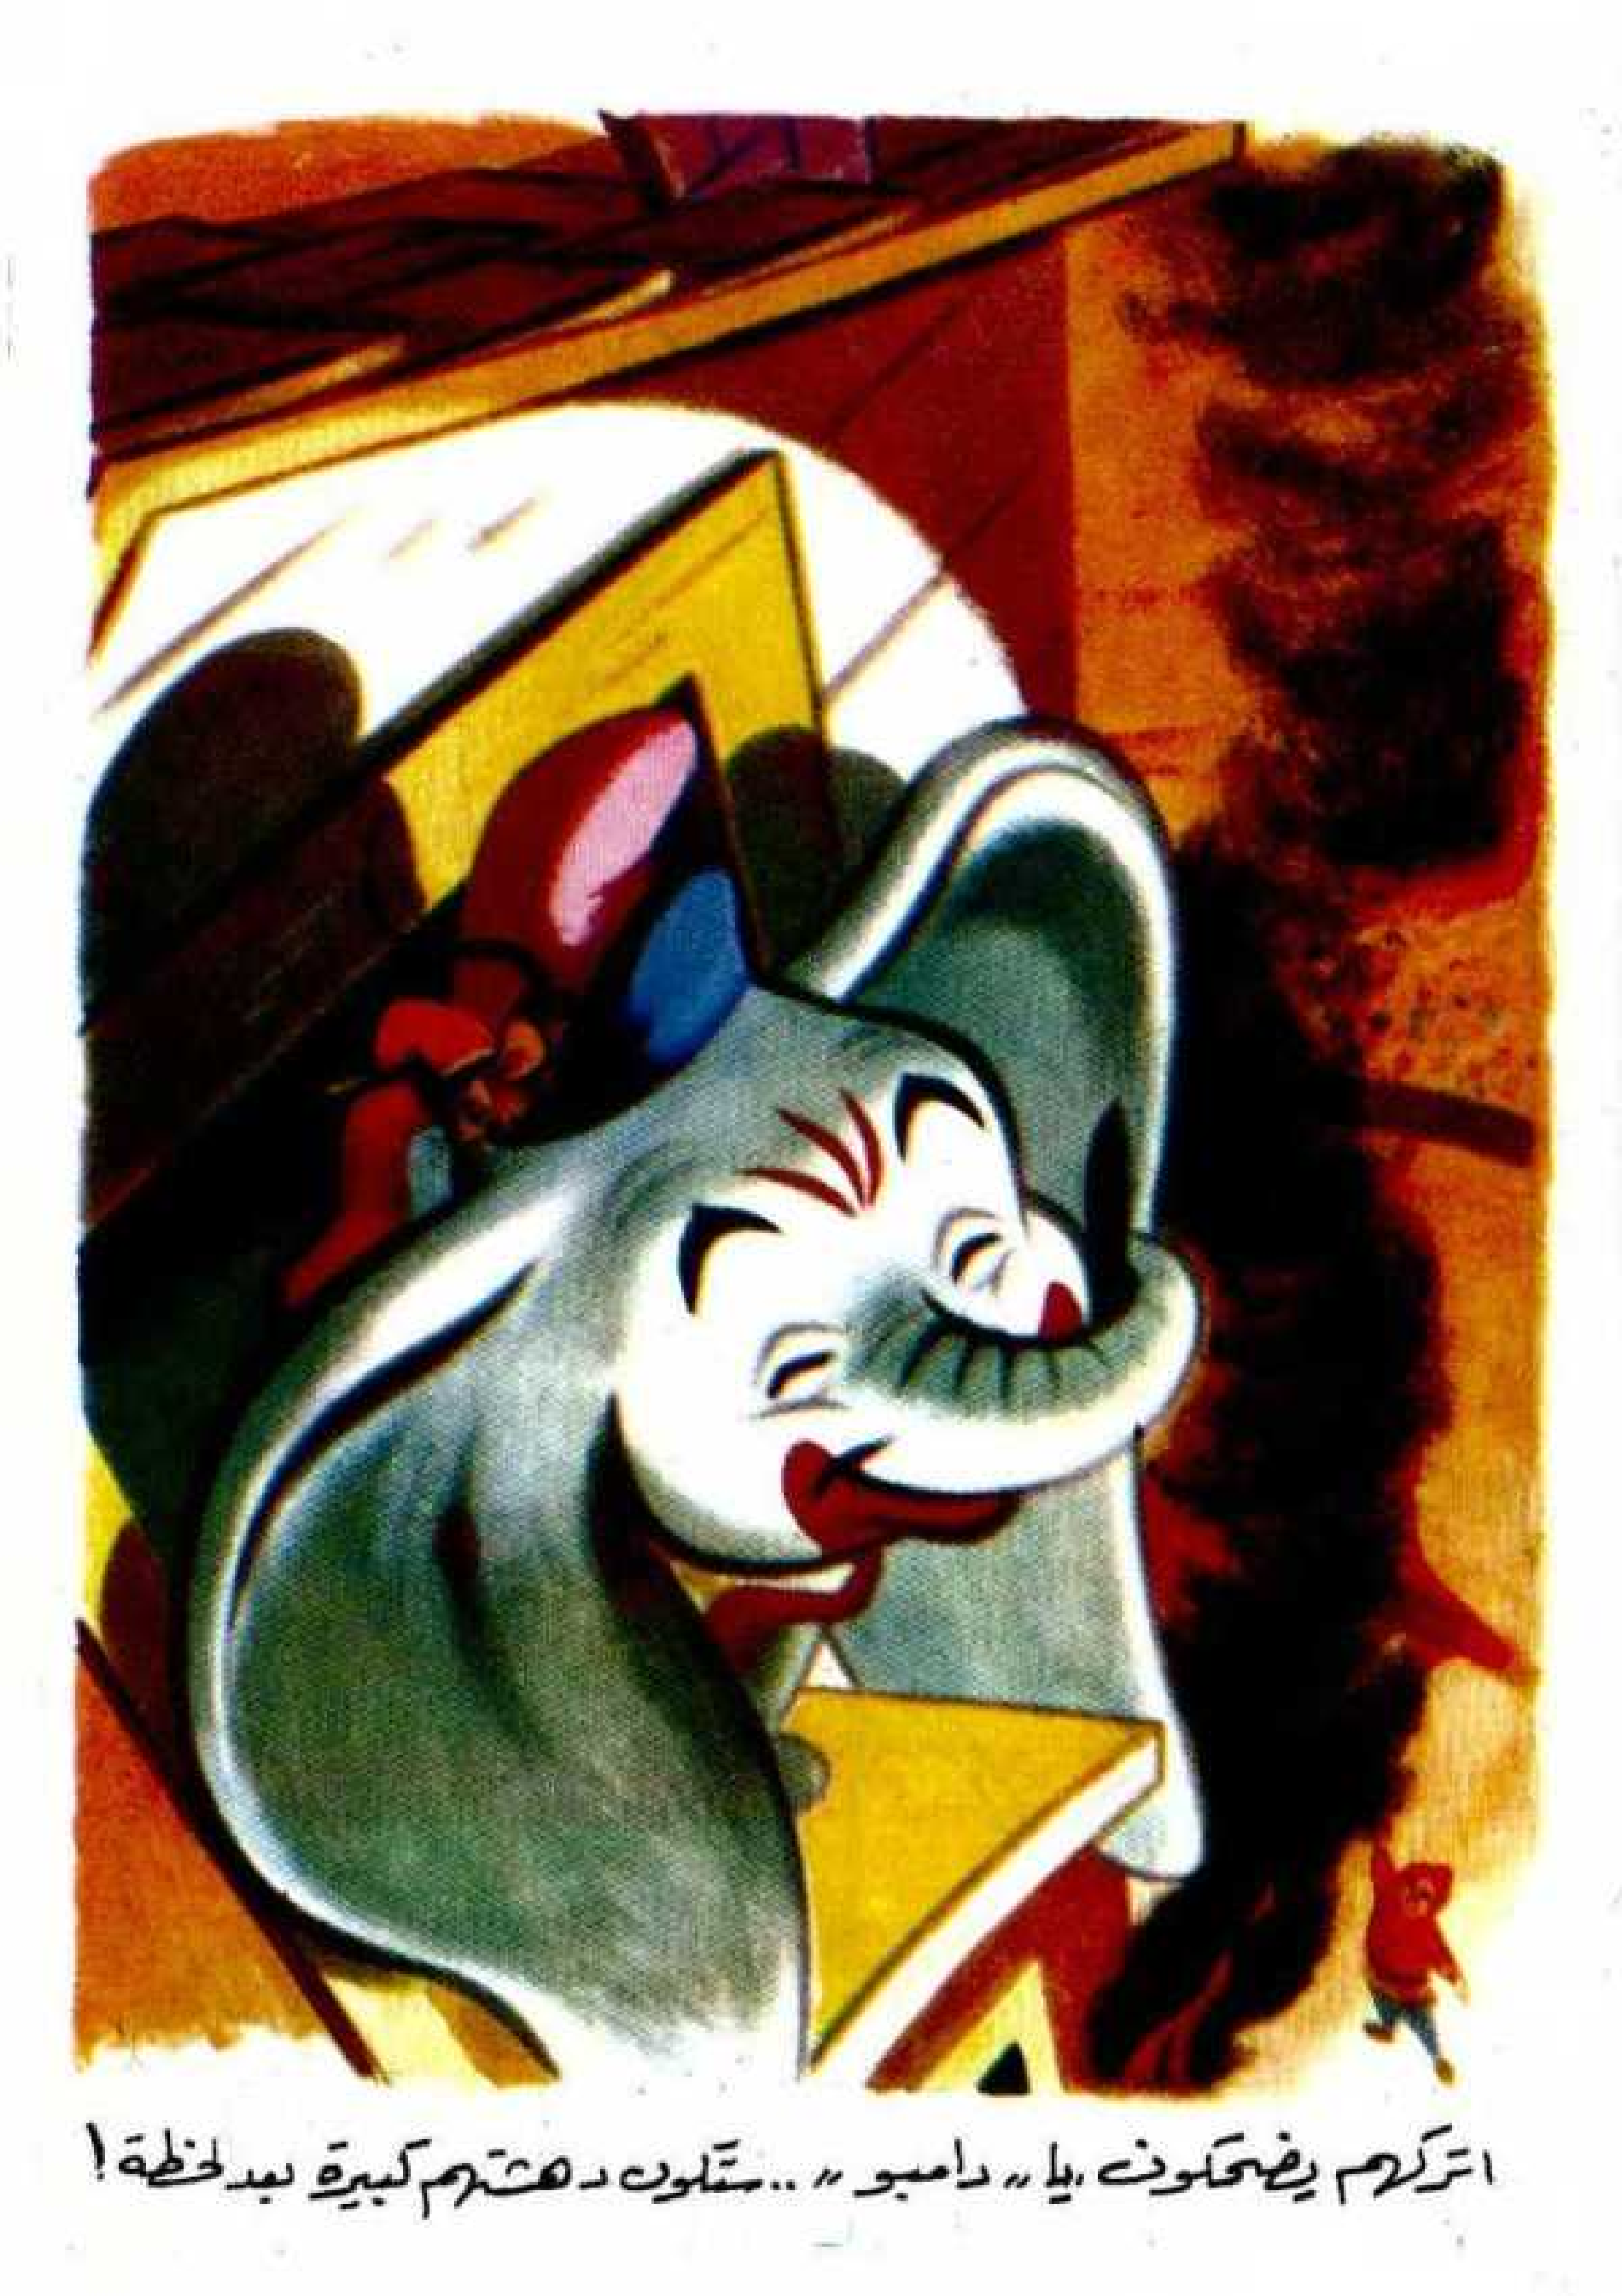 اتركهم يضحكون، يا ,, دامبو ,, .. ستكون دهشتهم كبيرة بعد لحظة !